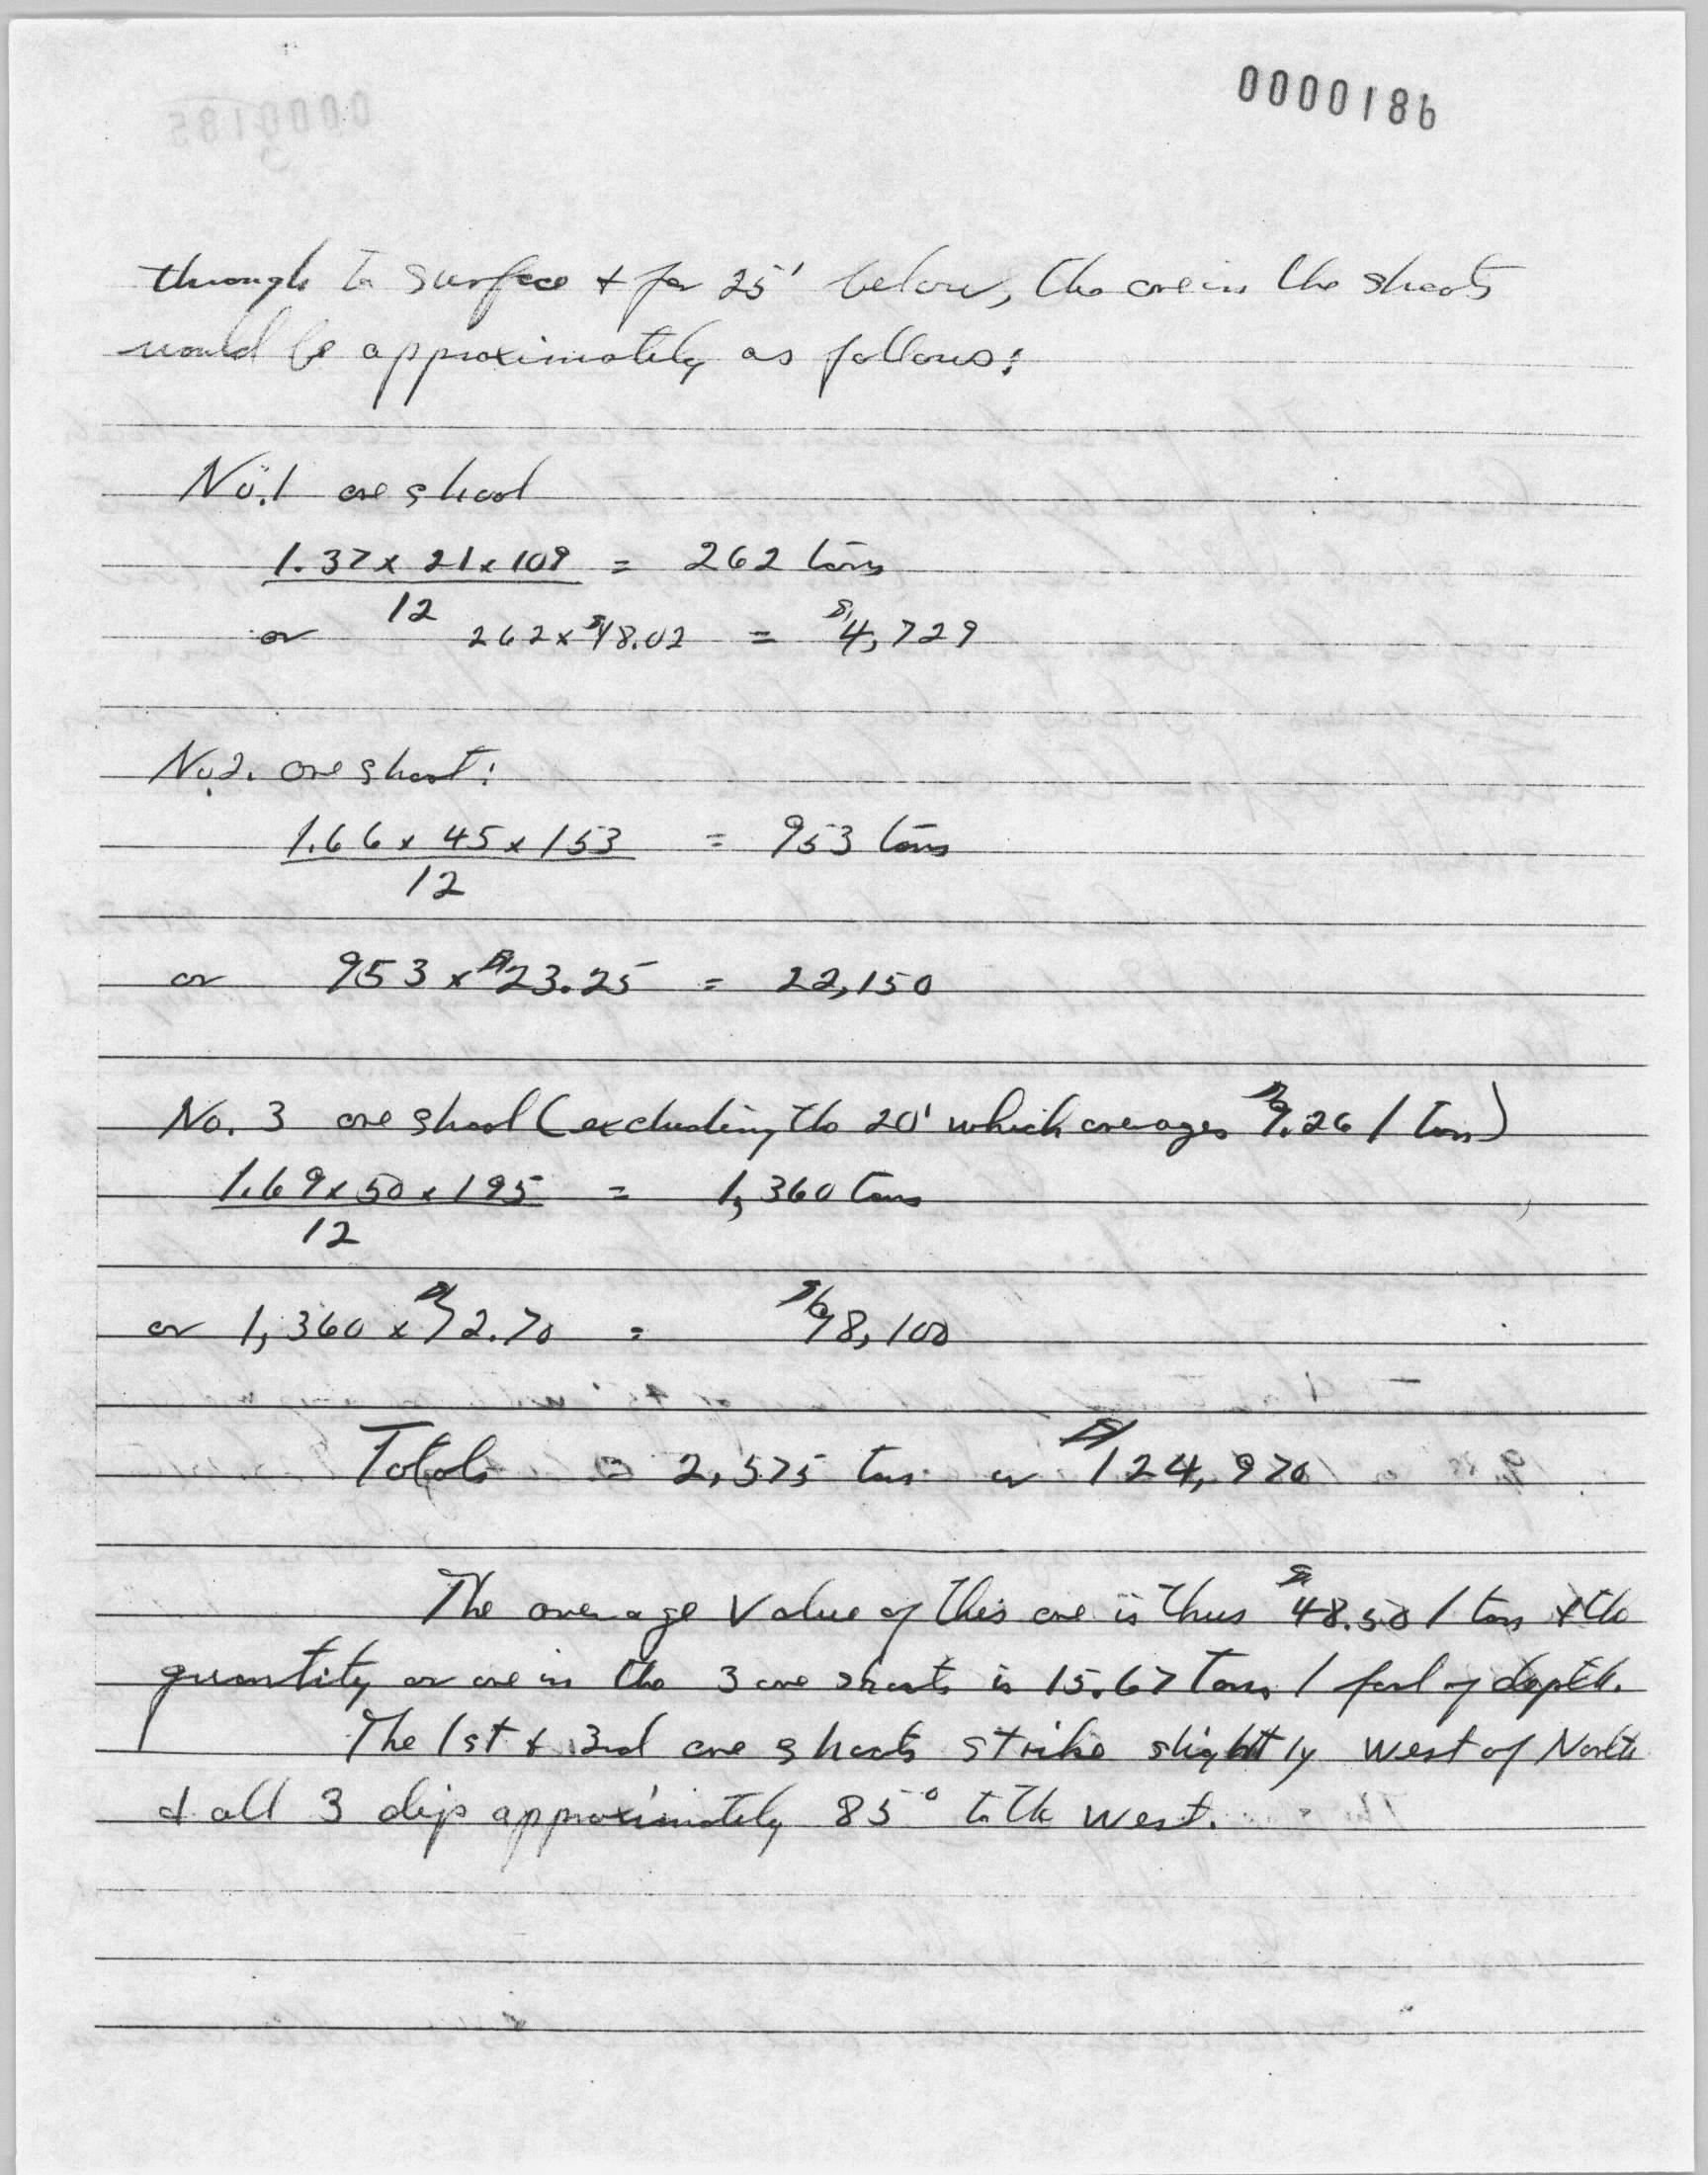 0000186
through to surface + for 25' below, the ore in the shoots
would be approximately as follows:
No. 1 ore shoot
1.37 x 21 x 109 = 262 tons
12
or 262 x $18.02 = $4,729
No 2. ore shoot:
1.66 x 45 x 153 = 953 tons
12
or 953 x $23.25 = 22,150
No. 3 ore shoot (excluding the 20' which averages $9.26 / ton)
1.69 x 50 x 195 = 1,360 tons
12
or 1,360 x $72.70 = $98,100
Totals = 2,575 tons or $124,970
The average value of this ore is thus $48.50 / ton + the
quantity or ore in the 3 ore shoots is 15.67 tons / foot of depth.
The 1st + 3rd ore shoots strike slightly west of North
+ all 3 dip approximately 85° to the west.